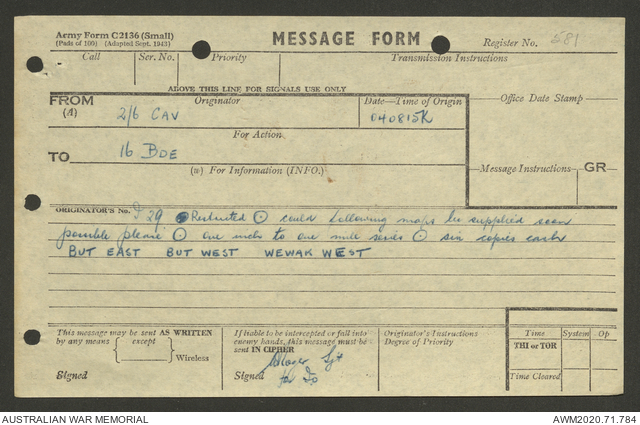 Army Form C2136 (Small)
(Pads of 100) (Adapted Sept. 1943)
MESSAGE FORM
Register No. 581
Call Ser. No. Priority Transmission Instructions
ABOVE THIS LINE FOR SIGNALS USE ONLY
FROM Originator Date—Time of Origin Office Date Stamp
(A) 2/6 CAV 040815K
For Action
TO 16 BDE
(W) For Information (INFO.) Message Instructions GR
ORIGINATOR'S No. I 29 Restricted ⊙ could following maps be supplied soon
possible please ⊙ one inch to one mile series ⊙ six copies each
BUT EAST BUT WEST WEWAK WEST
This message may be sent AS WRITTEN
by any means except
Wireless
Signed
If liable to be intercepted or fall into
enemy hands, this message must be
sent IN CIPHER
Signed Sgt
for IO
Originator's Instructions
Degree of Priority
Time System Op
THI or TOR
Time Cleared
AUSTRALIAN WAR MEMORIAL AWM2020.71.784